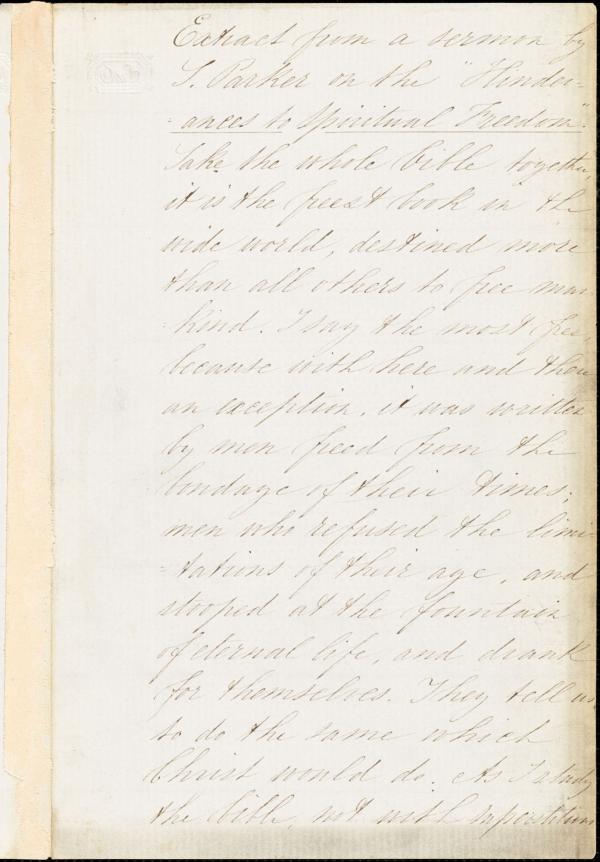 Extract from a sermon by
T. Parker on the "Hinder-
-ances to Spiritual Freedom".
Take the whole bible together,
it is the freest book in the
wide world, destined more
than all others to free man
-kind. I say the most free,
because with here and there
an exception, it was written
by men freed from the
bondage of their times;
men who refused the limi-
-tations of their age, and
stooped at the fountain
of eternal life, and drank
for themselves. They tell us
to do the same which
Christ would do. As I study
the bible, not with superstitious